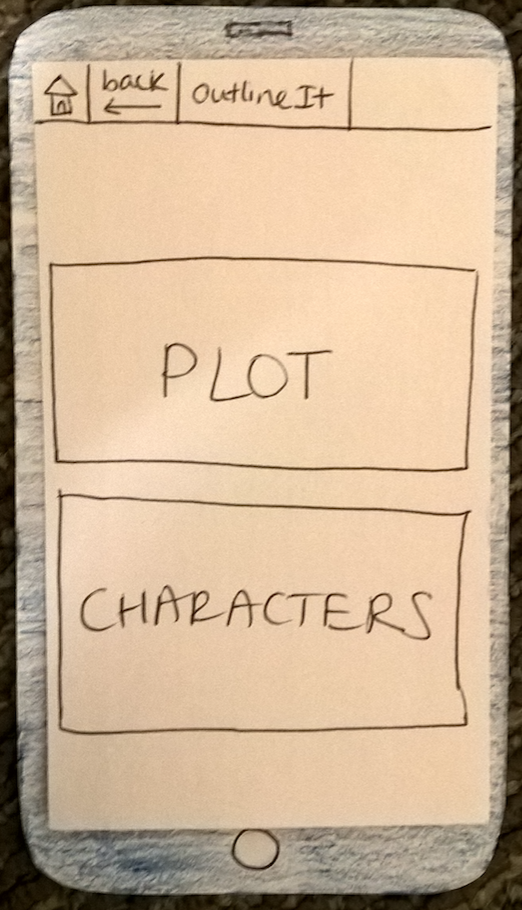 back
OutlineIt
PLOT
CHARACTERS